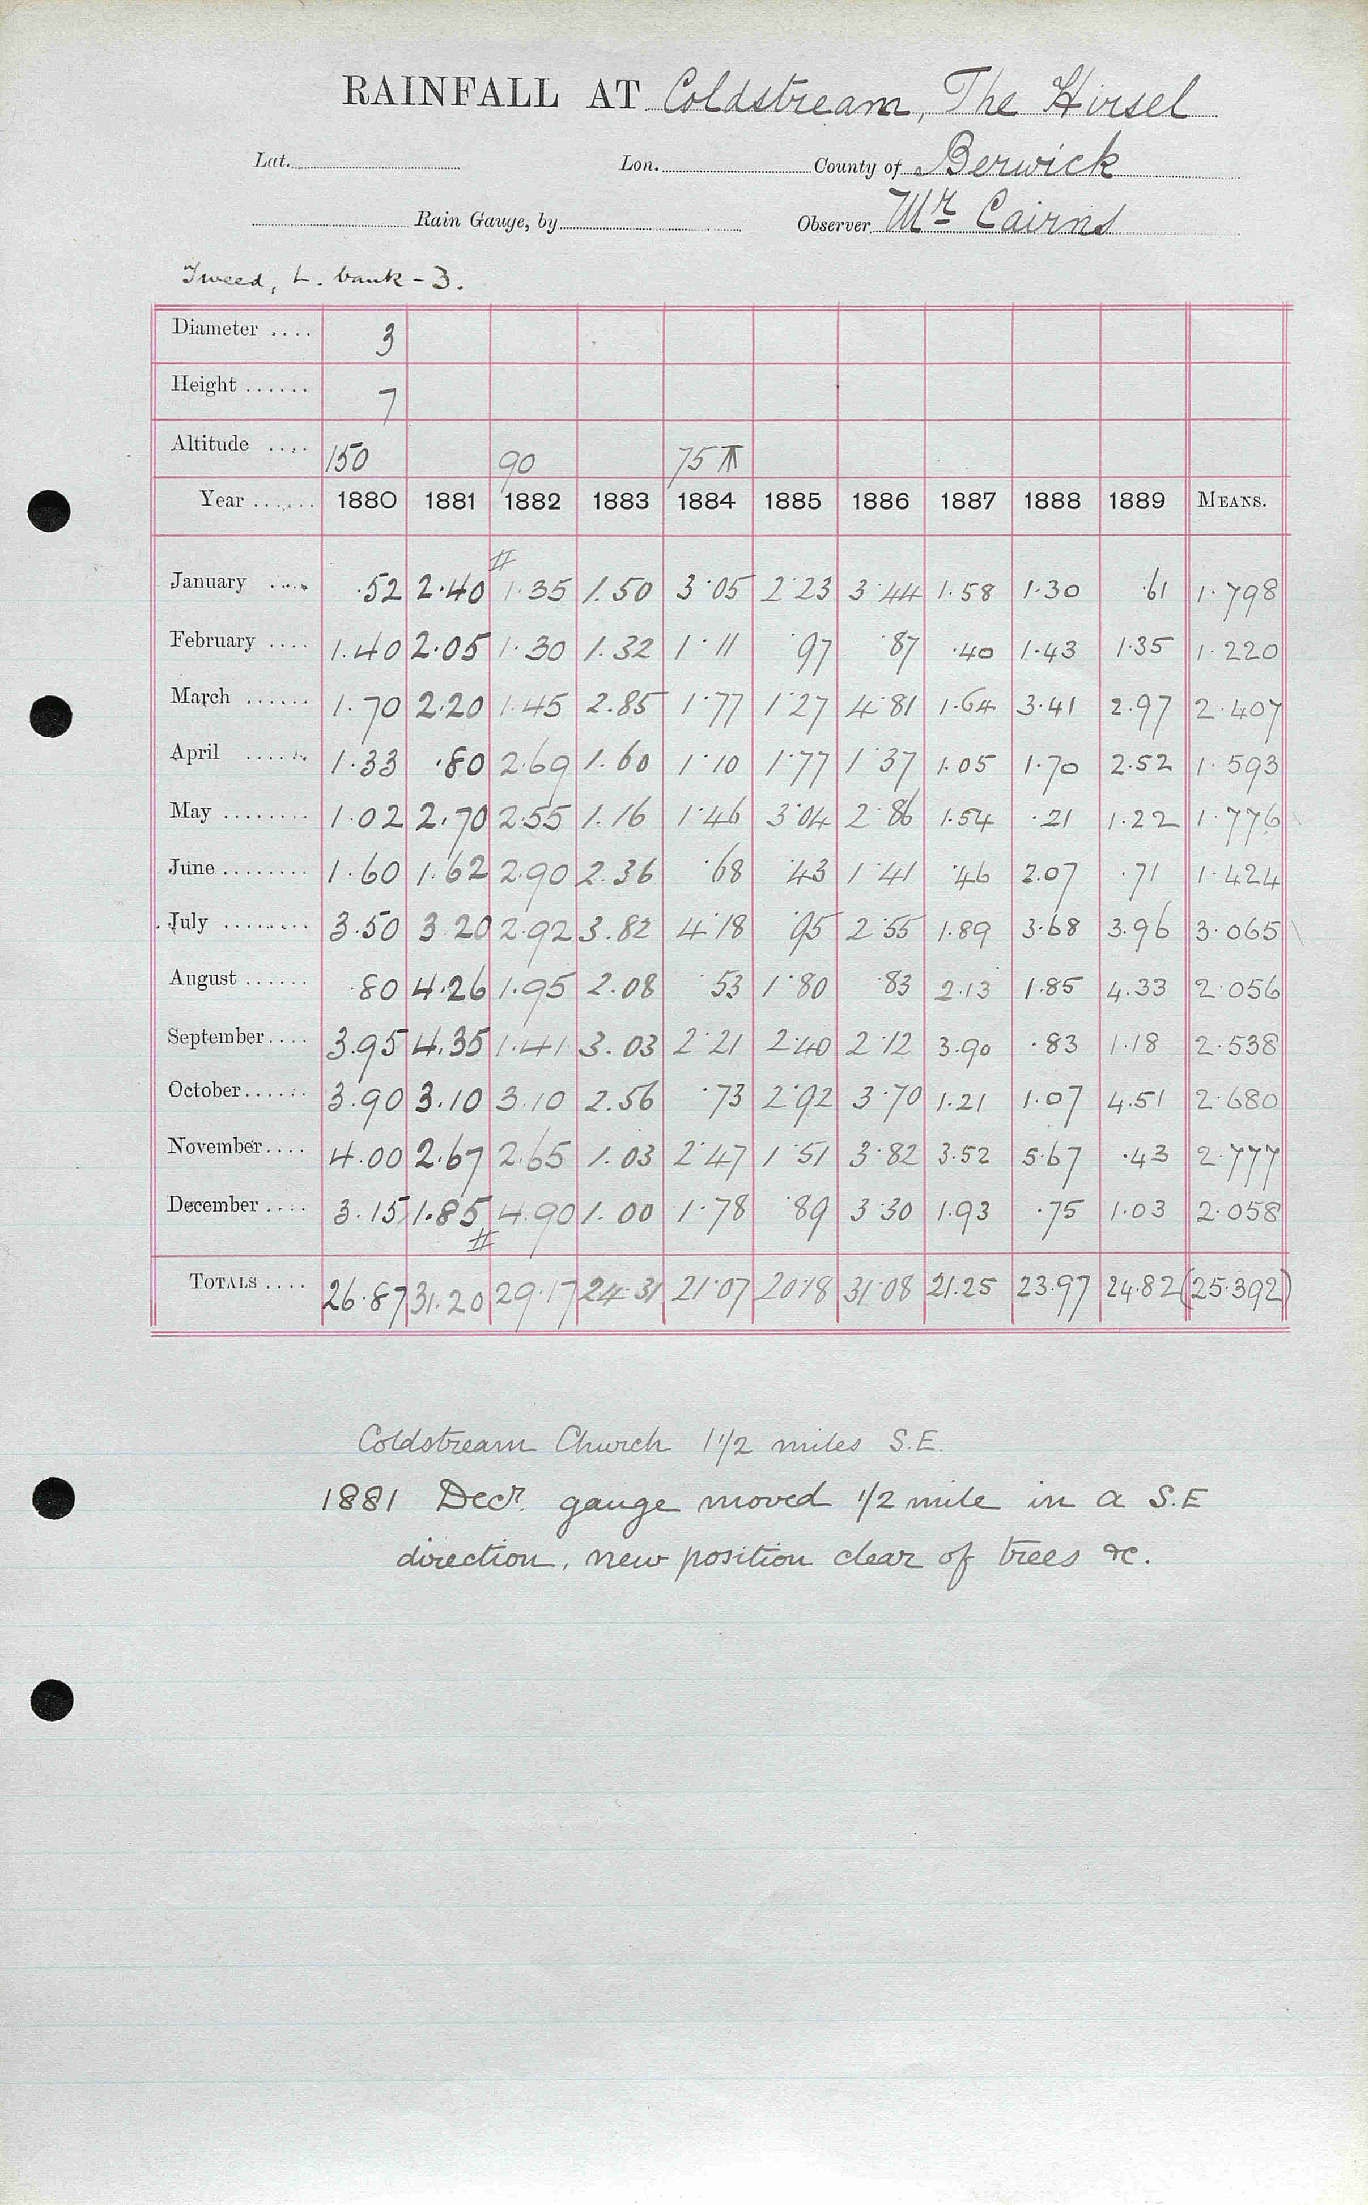 RAINFALL AT Coldstream, The Hirsel
Lat. Lon. County of Berwick
Rain Gauge, by Observer Mr Cairns
Tweed, L. bank - 3.
Diameter .... 3
Height ...... 7
Altitude .... 150 90 75
Year ...... 1880 1881 1882 1883 1884 1885 1886 1887 1888 1889 MEANS.
January .... .52 2.40 1.35 1.50 3.05 2.23 3.44 1.58 1.30 .61 1.798
February .... 1.40 2.05 1.30 1.32 1.11 .97 .87 .40 1.43 1.35 1.220
March ...... 1.70 2.20 1.45 2.85 1.77 1.27 4.81 1.64 3.41 2.97 2.407
April ...... 1.33 .80 2.69 1.60 1.10 1.77 1.37 1.05 1.70 2.52 1.593
May ........ 1.02 2.70 2.55 1.16 1.46 3.04 2.86 1.54 .21 1.22 1.776
June ........ 1.60 1.62 2.90 2.36 .68 .43 1.41 .46 2.07 .71 1.424
July ........ 3.50 3.20 2.92 3.82 4.18 .95 2.55 1.89 3.68 3.96 3.065
August ...... .80 4.26 1.95 2.08 .53 1.80 .83 2.13 1.85 4.33 2.056
September .... 3.95 4.35 1.41 3.03 2.21 2.40 2.12 3.90 .83 1.18 2.538
October ...... 3.90 3.10 3.10 2.56 .73 2.92 3.70 1.21 1.07 4.51 2.680
November .... 4.00 2.67 2.65 1.03 2.47 1.51 3.82 3.52 5.67 .43 2.777
December .... 3.15 1.85 4.90 1.00 1.78 .89 3.30 1.93 .75 1.03 2.058
TOTALS .... 26.87 31.20 29.17 24.31 21.07 20.18 31.08 21.25 23.97 24.82 (25.392)
Coldstream Church 1 1/2 miles S.E.
1881 Decr. gauge moved 1/2 mile in a S.E
direction, new position clear of trees &c.